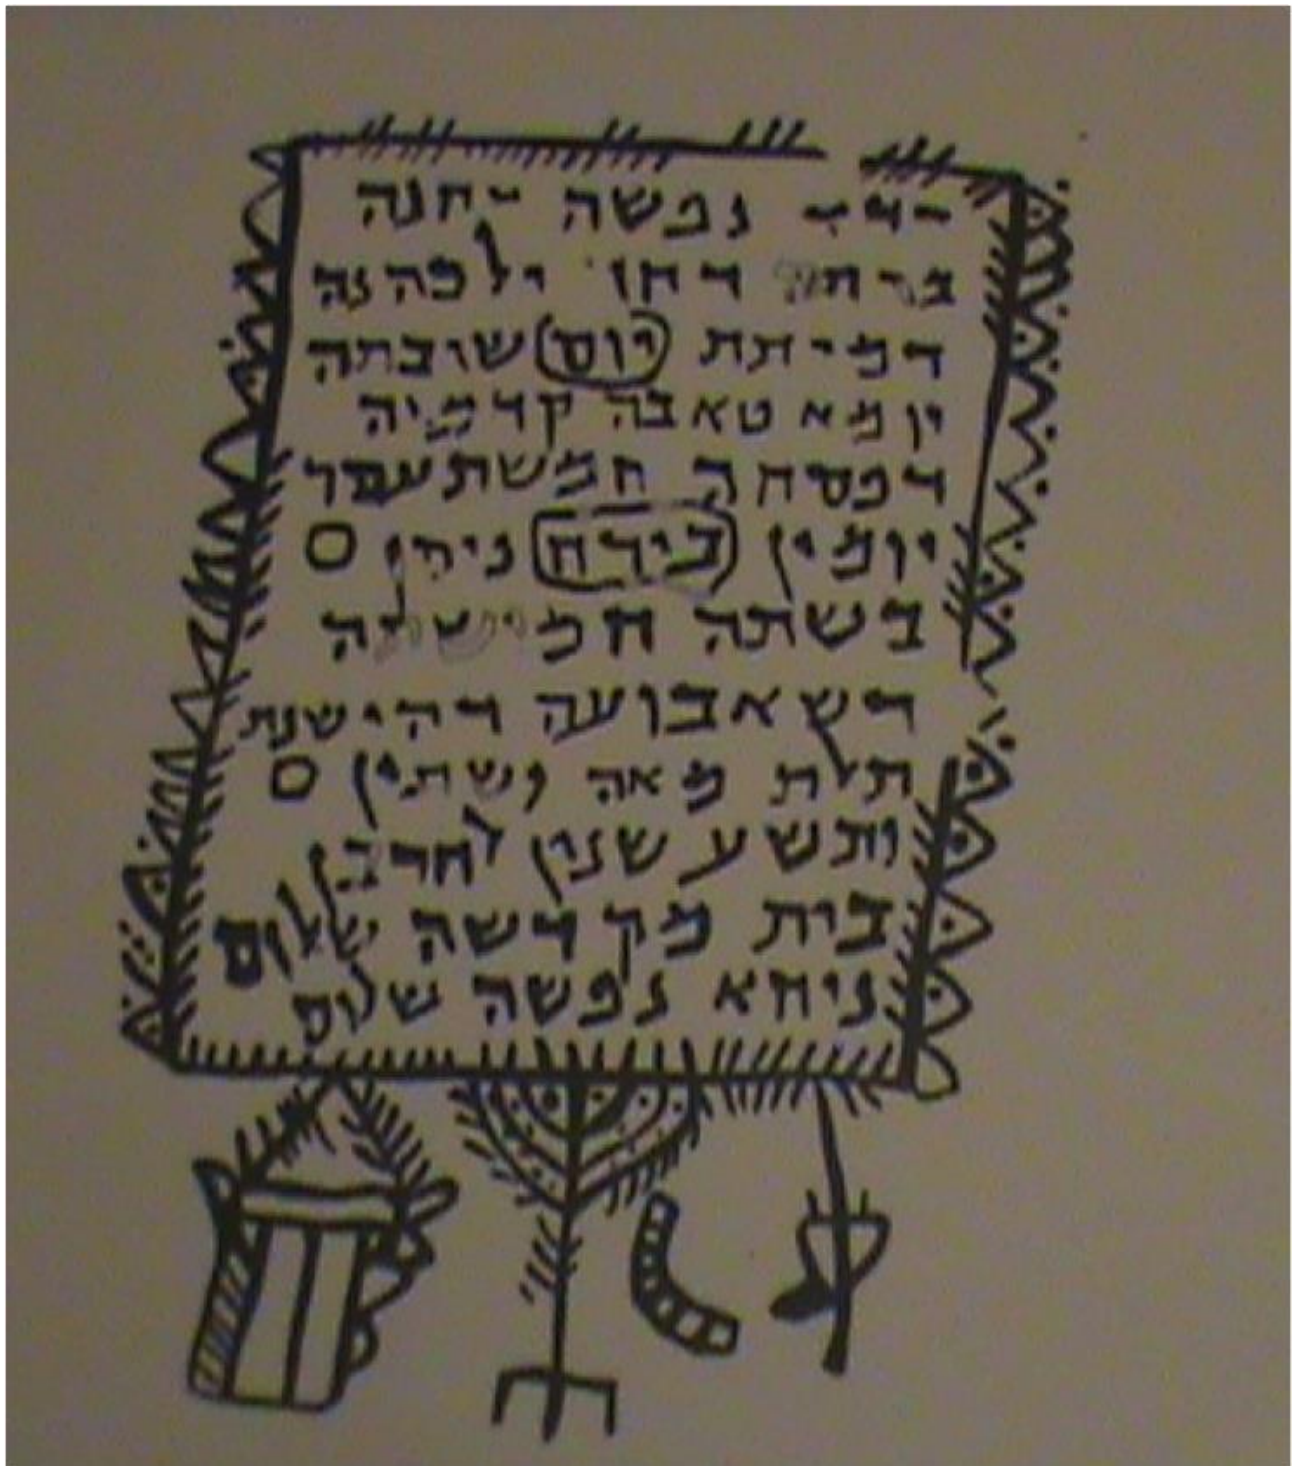 נפשה יחנה
דחן ילכהנה
דמיתת יום שובתה
ין מא טאבה קדמיה
דפסחה חמשת עסר
יומין בירח ניסן ס
בשתה חמישיתה
דשאבועה דהי שנת
תלת מאה ושתין ס
ותשע שנין לחרבן
בית מקדשה שלום
ניחא נפשה שלום